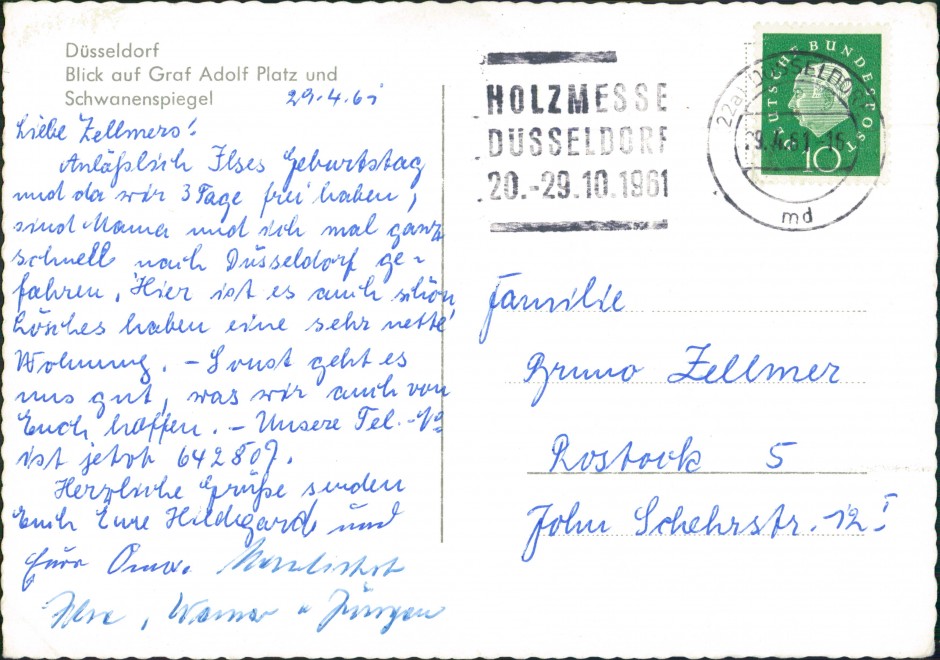 Düsseldorf
Blick auf Graf Adolf Platz und
Schwanenspiegel
29.4.61
Liebe Zellmers!
Anläßlich Ilses Geburtstag
und da wir 3 Tage frei haben,
sind Mama und ich mal ganz
schnell nach Düsseldorf ge-
fahren. Hier ist es auch schön
Lösches haben eine sehr nette
Wohnung. – Sonst geht es
uns gut, was wir auch von
Euch hoffen. – Unsere Tel.-No
ist jetzt 642807.
Herzliche Grüße senden
Euch Eure Hildegard und
Eure Oma. Herzlichst
Ilse, Werner u Jürgen
HOLZMESSE
DÜSSELDORF
20.-29.10.1961
(22a) DÜSSELDORF
29.4.61.-16
md
DEUTSCHE BUNDESPOST
10
Familie
Bruno Zellmer
Rostock 5
John Schehrstr. 12 I